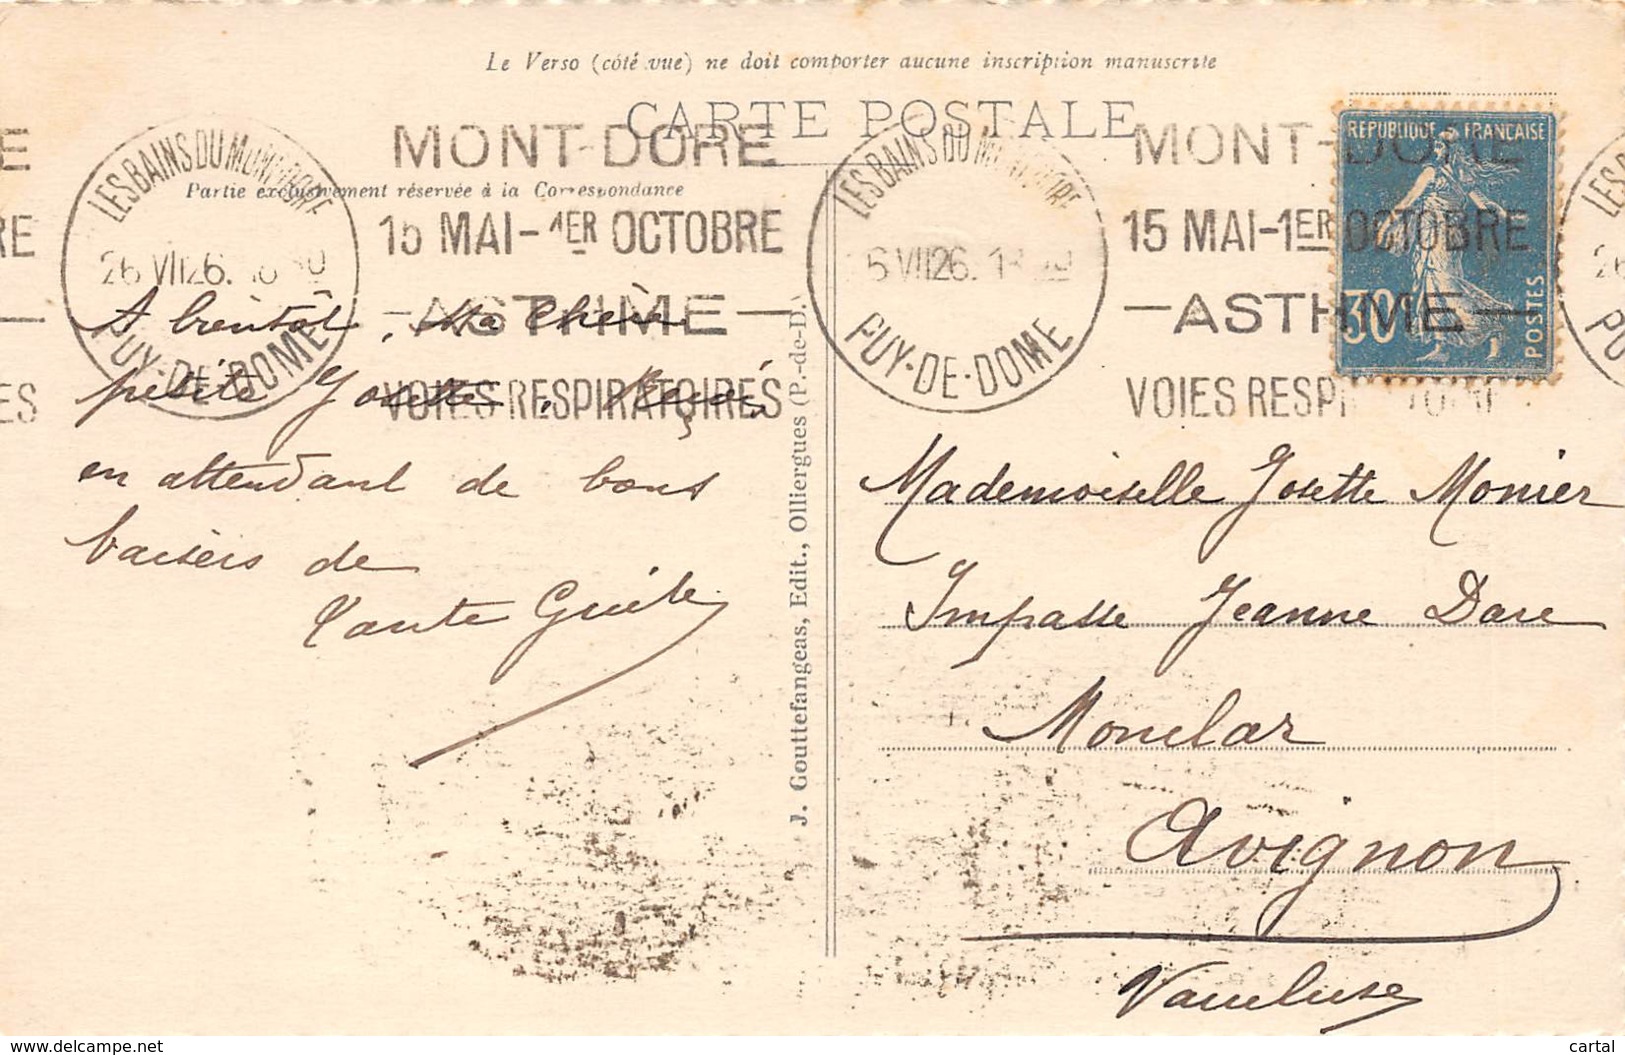 Le Verso (côté vue) ne doit comporter aucune inscription manuscrite
CARTE POSTALE
Partie exclusivement réservée à la Correspondance
LES BAINS DU MONT-DORE
26 VII 26.
PUY-DE-DOME
MONT-DORE
15 MAI-1ER OCTOBRE
-ASTHME-
VOIES RESPIRATOIRES
LES BAINS DU MONT-DORE
6 VII 26.
PUY-DE-DOME
MONT-DORE
15 MAI-1ER OCTOBRE
-ASTHME-
VOIES RESP
REPUBLIQUE FRANÇAISE
30c
POSTES
A bientôt, Ma Chère
petite Josette, Reçois
en attendant de bons
baisers de
Tante
J. Gouttefangeas, Edit., Olliergues (P.-de-D.)
Mademoiselle Josette Monier
Impasse Jeanne Darc
Monclar
Avignon
Vaucluse
https://www.delcampe.net
cartal